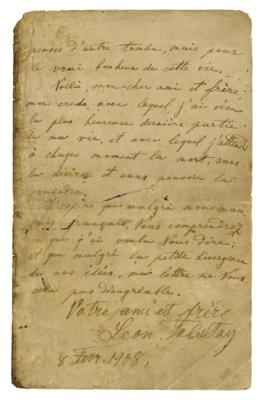 penses d'autre tombe, mais pour
le vrai bonheur de cette vie.
Voilà, mon cher ami et frère
mon credo, avec lequel j'ai vécu
la plus heureuse dernière partie
de ma vie, et avec lequel j'attends
à chaque moment la mort, sans
la désirer et sans pouvoir la
craindre.
J'espère que malgré mon mau
vais français, Vous comprendrez
ce que j'ai voulu Vous dire;
et que malgré la petite divergence
de nos idées, ma lettre ne Vous
sera pas désagréable.
Votre ami et frère
Leon Tolstoy
8 Févr. 1908,